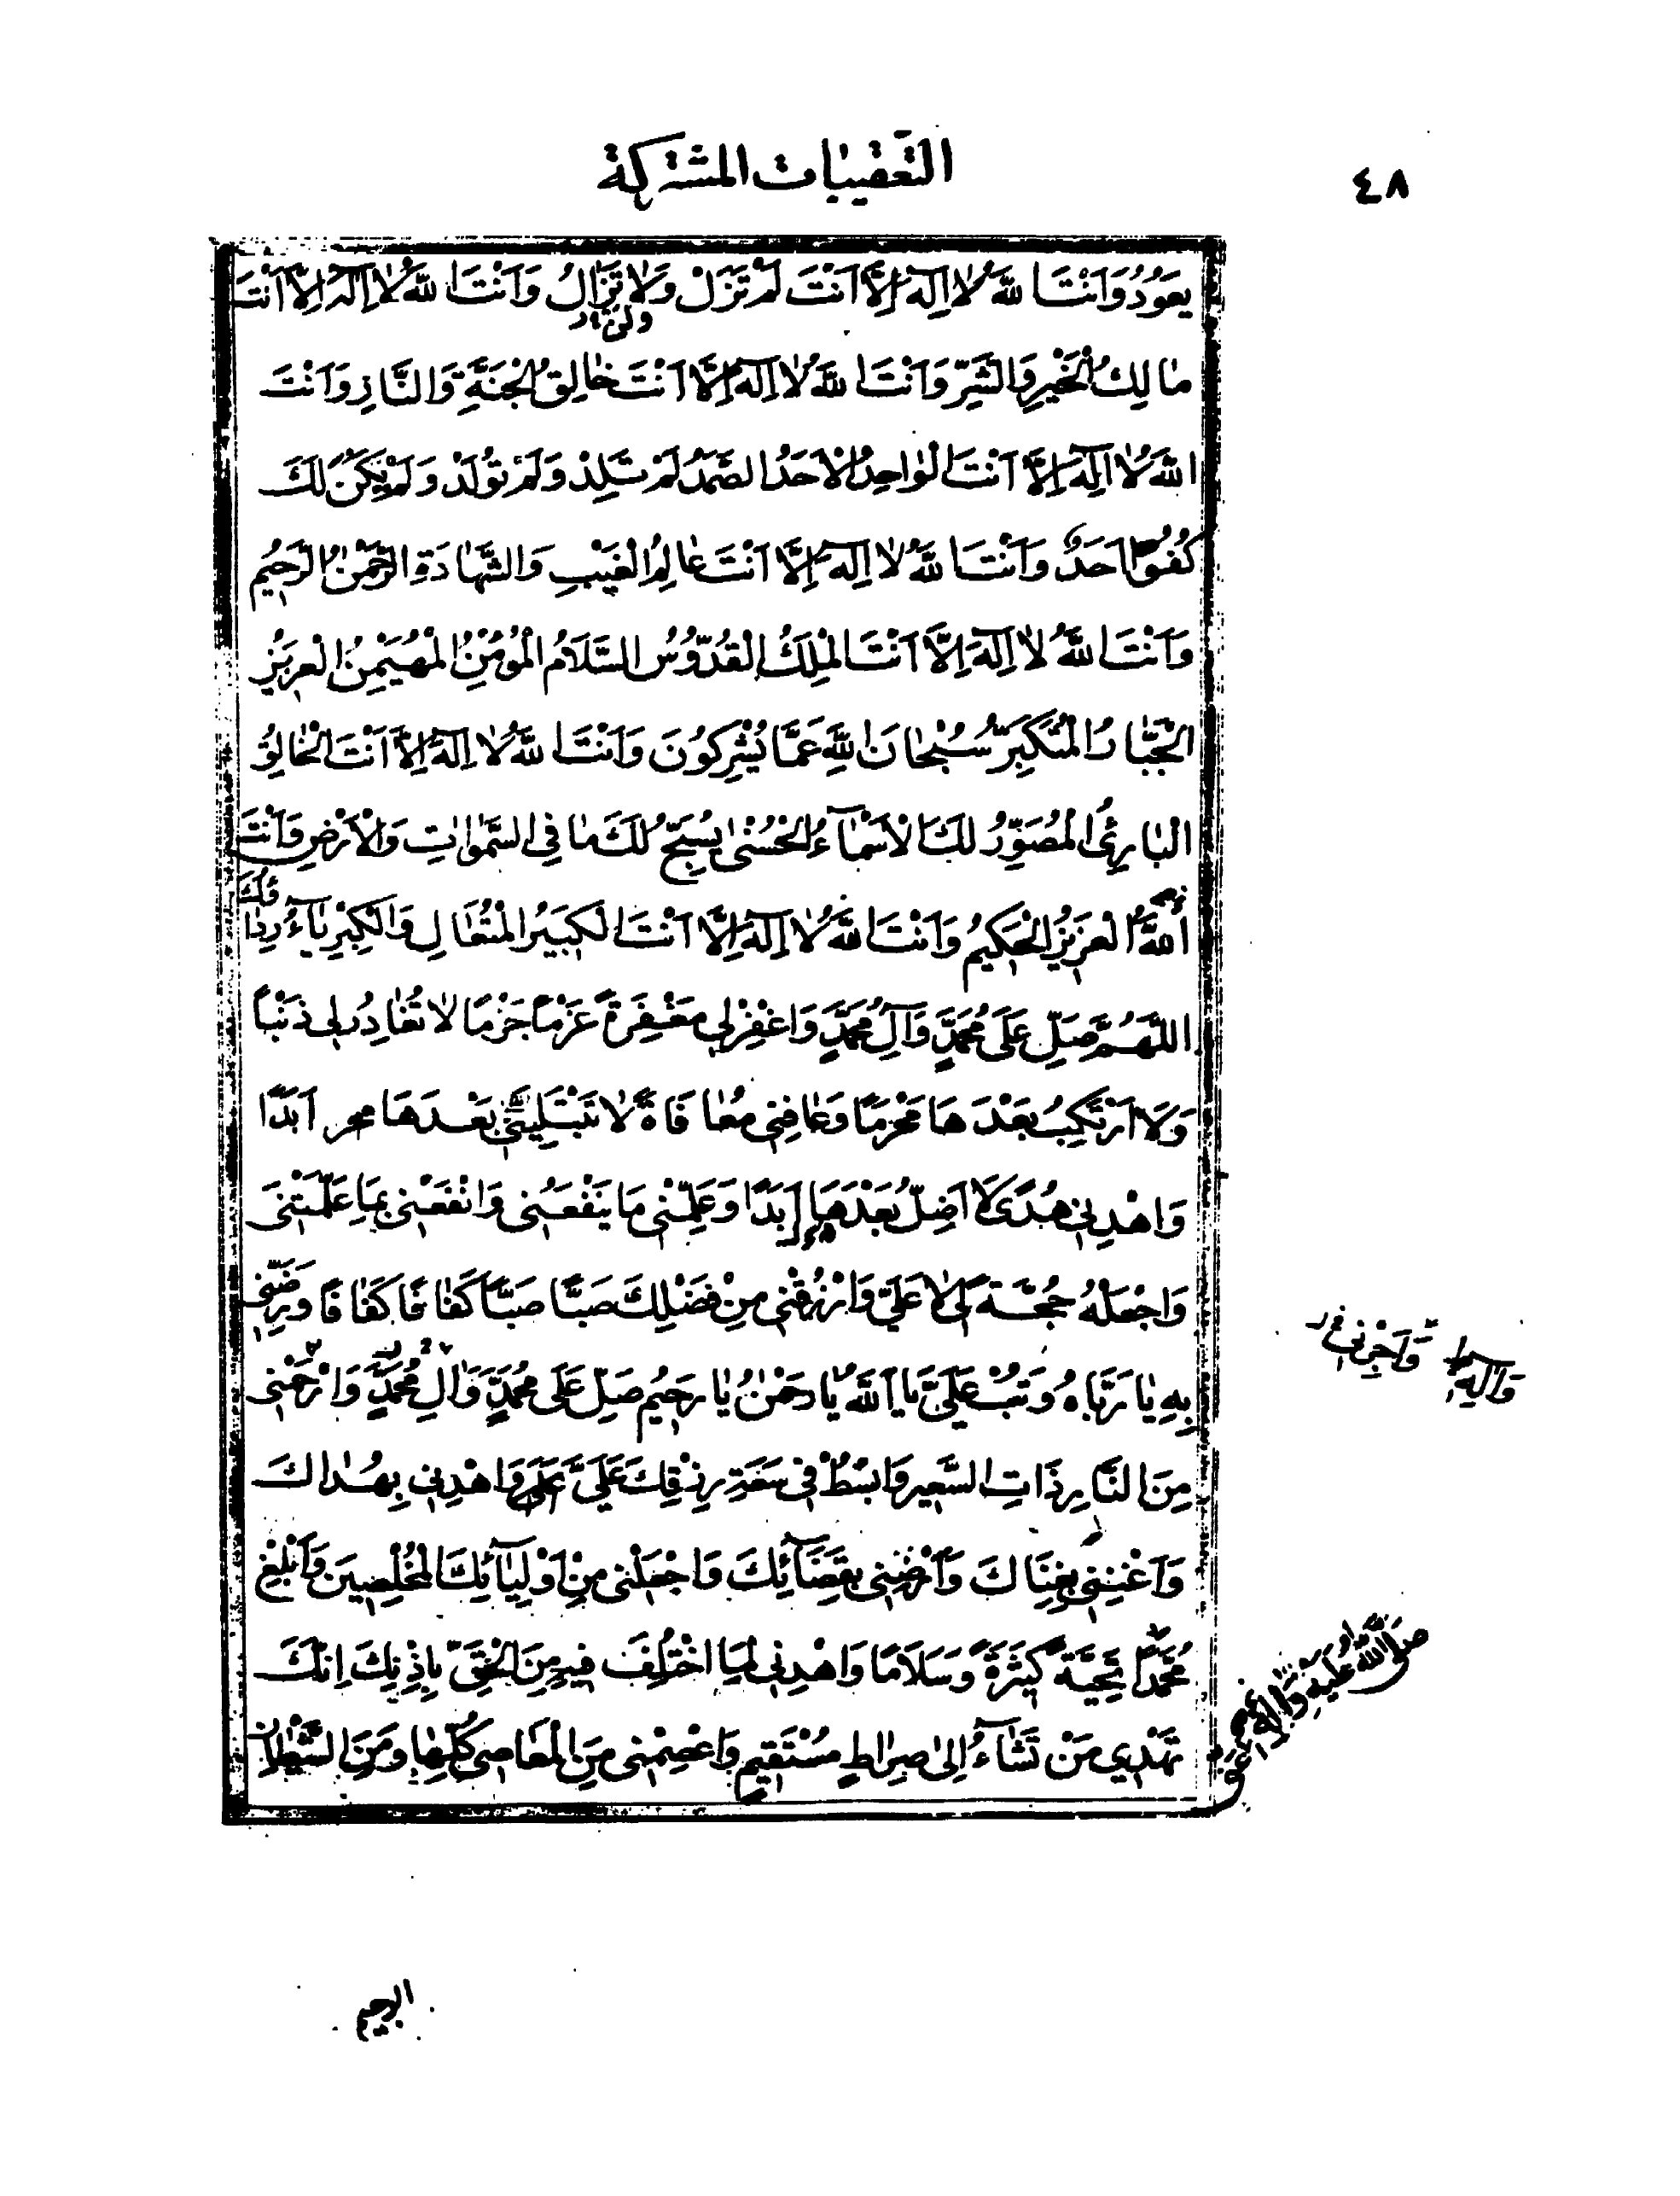 ٤٨
التعقيبات المشتركة
يَعُودُ وَاَنْتَ اللهُ لاٰ اِلٰهَ اِلَّا اَنْتَ لَمْ تَزَلْ وَلاٰ تَزٰالُ وَاَنْتَ اللهُ لاٰ اِلٰهَ اِلَّا اَنْتَ
ولن
مٰالِكُ الْخَيْرِ وَالشَّرِّ وَاَنْتَ اللهُ لاٰ اِلٰهَ اِلَّا اَنْتَ خٰالِقُ الْجَنَّةِ وَالنَّارِ وَاَنْتَ
اللهُ لاٰ اِلٰهَ اِلَّا اَنْتَ الْوٰاحِدُ الْاَحَدُ الصَّمَدُ لَمْ تَلِدْ وَلَمْ تُولَدْ وَلَمْ يَكُنْ لَكَ
كُفُوًا اَحَدٌ وَاَنْتَ اللهُ لاٰ اِلٰهَ اِلَّا اَنْتَ عٰالِمُ الْغَيْبِ وَالشَّهٰادَةِ الرَّحْمٰنُ الرَّحِيمُ
وَاَنْتَ اللهُ لاٰ اِلٰهَ اِلَّا اَنْتَ الْمَلِكُ الْقُدُّوُسُ السَّلاٰمُ الْمُؤْمِنُ الْمُهَيْمِنُ الْعَزِيزُ
الْجَبّٰارُ الْمُتَكَبِّرُ سُبْحٰانَ اللهِ عَمَّا يُشْرِكُونَ وَاَنْتَ اللهُ لاٰ اِلٰهَ اِلَّا اَنْتَ الْخٰالِقُ
الْبٰارِئُ الْمُصَوِّرُ لَكَ الْاَسْمٰآءُ الْحُسْنٰى يُسَبِّحُ لَكَ مٰا فِي السَّمٰوٰاتِ وَالْاَرْضِ وَاَنْتَ
اللهُ الْعَزِيزُ الْحَكِيمُ وَاَنْتَ اللهُ لاٰ اِلٰهَ اِلَّا اَنْتَ الْكَبِيرُ الْمُتَعٰالِ وَالْكِبْرِيٰآءُ رِدٰاؤُكَ
اللّٰهُمَّ صَلِّ عَلَى مُحَمَّدٍ وَآلِ مُحَمَّدٍ وَاغْفِرْ لِي مَغْفِرَةً عَزْمًا جَزْمًا لاٰ تُغٰادِرُ لِي ذَنْبًا
وَلَا اَرْتَكِبُ بَعْدَهَا مُحَرَّمًا وَعٰافِنِي مُعٰافَاةً لاٰ تَبْتَلِيَنِّي بَعْدَهَا اَبَدًا
وَاهْدِنِي هُدًى لَا اَضِلُّ بَعْدَهَا اَبَدًا وَعَلِّمْنِي مَا يَنْفَعُنِي وَانْفَعْنِي بِمَا عَلَّمْتَنِي
وَاجْعَلْهُ حُجَّةً لِي لاٰ عَلَيَّ وَارْزُقْنِي مِنْ فَضْلِكَ صَبًّا صَبًّا كَفَافًا كَفٰافًا وَرَضِّنِي
بِهِ يٰا رَبَّاهُ وَتُبْ عَلَيَّ يٰا اَللهُ يٰا رَحْمٰنُ يٰا رَحِيمُ صَلِّ عَلَى مُحَمَّدٍ وَاٰلِ مُحَمَّدٍ وَارْحَمْنِي
وَاَجِرْنِي
وَآلِهِ
مِنَ النَّارِ ذَاتِ السَّعِيرِ وَابْسُطْ فِي سَعَةِ رِزْقِكَ عَلَيَّ وَاهْدِنِي بِهُدٰاكَ
وَاَغْنِنِي بِغِنَاكَ وَاَرْضِنِي بِقَضٰآئِكَ وَاجْعَلْنِي مِنْ اَوْلِيٰآئِكَ الْمُخْلَصِينَ وَاَبْلِغْ
مُحَمَّدًا تَحِيَّةً كَثِيرَةً وَسَلَامًا وَاهْدِنِي لِمَا اخْتُلِفَ فِيهِ مِنَ الْحَقِّ بِاِذْنِكَ اِنَّكَ
صَلَّى اللهُ عَلَيْهِ وَاٰلِهِ
تَهْدِي مَنْ تَشٰآءُ اِلىٰ صِرٰاطٍ مُسْتَقِيمٍ وَاعْصِمْنِي مِنَ الْمَعٰاصِي كُلِّهٰا وَمِنَ الشَّيْطٰانِ
الرجيم